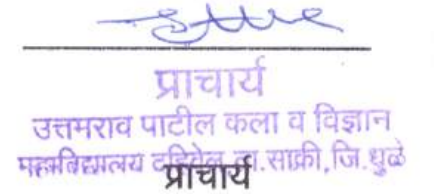 प्राचार्य
उत्तमराव पाटील कला व विज्ञान
महाविद्यालय दहिवेल ता.साक्री, जि.धुळे
प्राचार्य